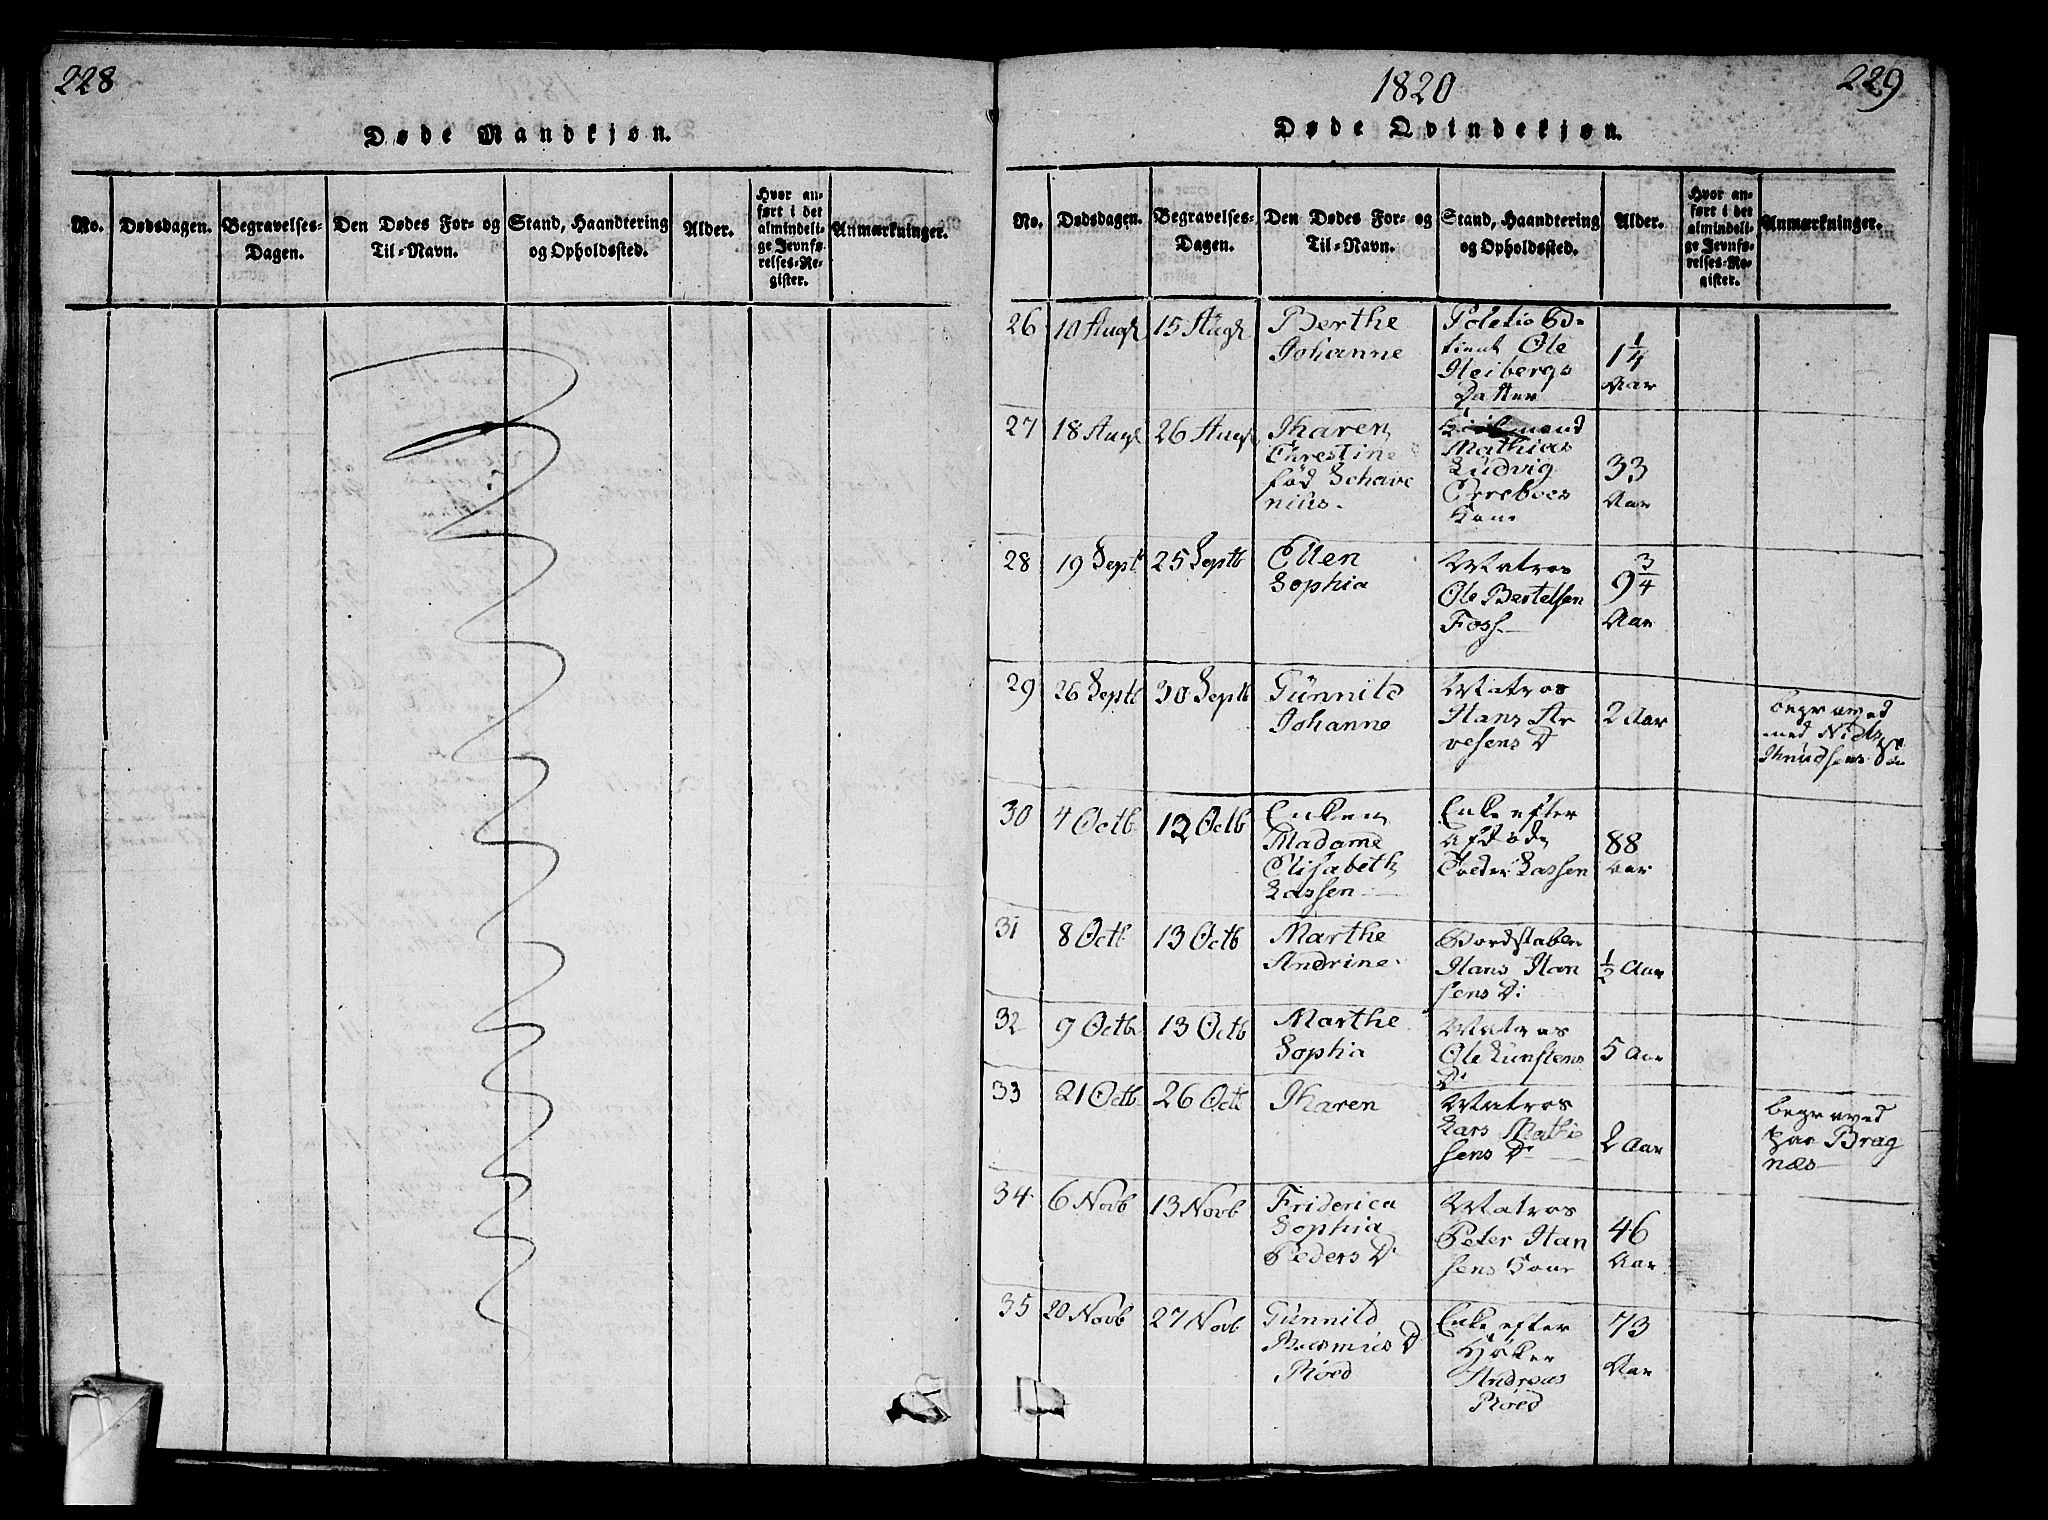 228
Døde Mandkjøn.
No.
Dødsdagen.
Begravelses-
Dagen.
Den Dødes For- og
Til-Navn.
Stand, Haandtering
og Opholdssted.
Alder.
Hvor an-
ført i det
almindeli-
ge Jevnfø-
relses-Re-
gister.
Anmærkninger.
1820
229
Døde Qvindekjøn.
No.
Dødsdagen.
Begravelses-
Dagen.
Den Dødes For- og
Til-Navn.
Stand, Haandtering
og Opholdssted.
Alder.
Hvor an-
ført i det
almindeli-
ge Jevnfø-
relses-Re-
gister.
Anmærkninger.
26
10 Augst
15 Augst
Berthe
Johanne
Ole
Heibergs
Datter
1 1/4
Aar
27
18 Augst
26 Augst
Tharen
Chrestine
fød Schave
nius.
Mathias
Ludvig
Erreboes
Kone
33
Aar
28
19 Septb
25 Septb
Ellen
Sophia
Matros
Ole Bertelsen
Foss
9 3/4
Aar
29
26 Septb
30 Septb
Gunnild
Johanne
Matros
Hans Ar
vesens D
2 Aar
begraved
med Niels
Knudsens Søn
30
4 Octb
12 Octb
Enken
Madame
Elisabeth
Lassen
Enke efter
afdøde
Peder Lassen
88
Aar
31
8 Octb
13 Octb
Marthe
Andrine
Bordstabler
Hans Han
sens D:
1/2 Aar
32
9 Octb
13 Octb
Marthe
Sophia
Matros
Ole
D:
5 Aar
33
21 Octb
26 Octb
Tharen
Matros
Lars Mathie
sens D
2 Aar
begraved
paa Brag
næs
34
6 Novb
13 Novb
Friderica
Sophia
Peders D
Matros
Peter Han
sens Kone
46
Aar
35
20 Novb
27 Novb
Gunnild
Rasmus D
Røed
Enke efter
Høker
Andreas
Røed
73
Aar